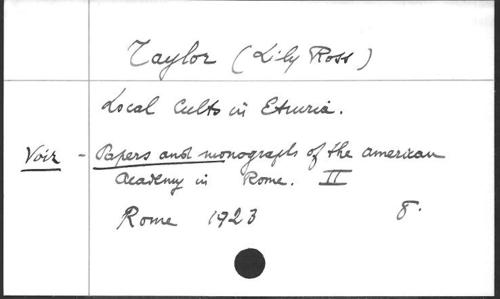 Taylor (Lily Ross)
Local Cults in Etruria.
Voir - Papers and monographs of the American
Academy in Rome. II
Rome 1923 8.